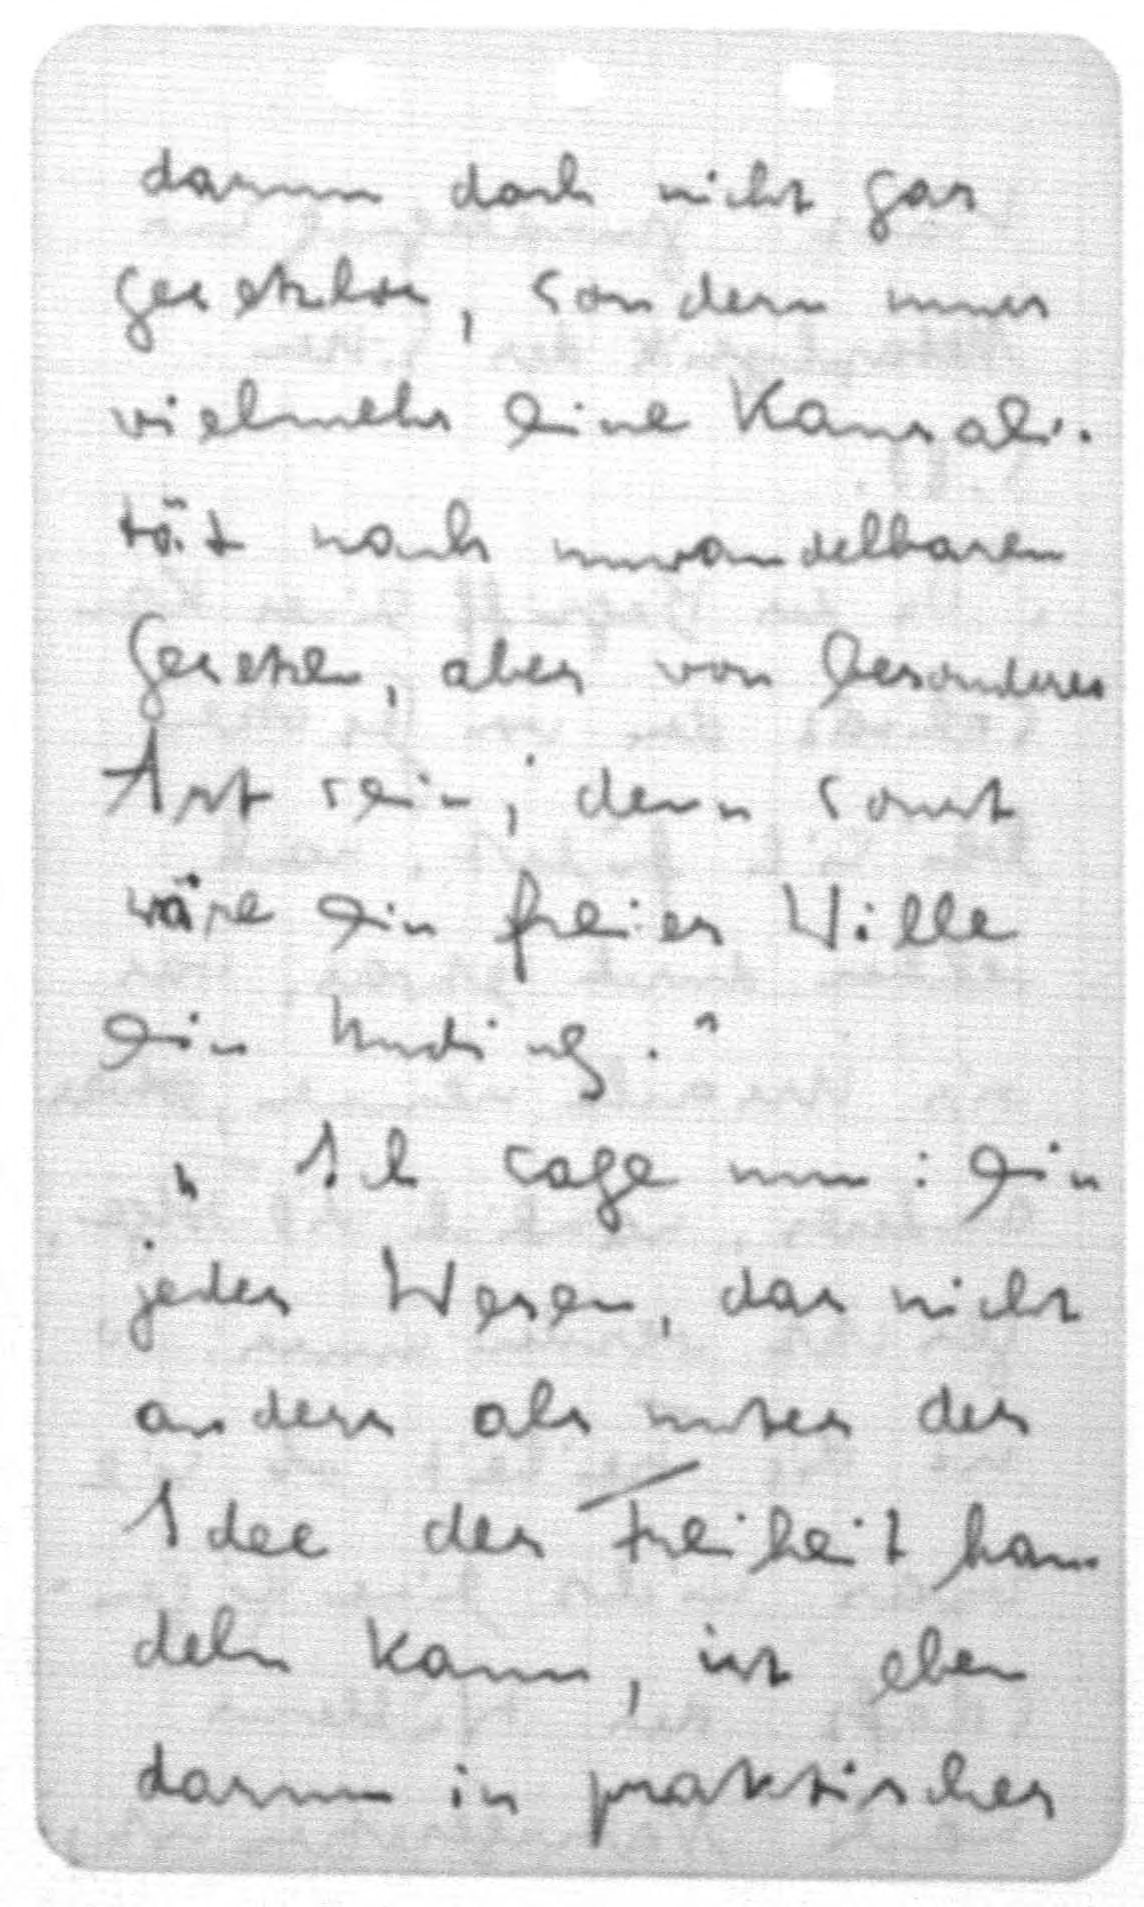 darum doch nicht gar
gesetzlos, sondern muss
vielmehr eine Kausali-
tät nach unwandelbaren
Gesetzen, aber von besonderer
Art sein; denn sonst
wäre ein freier Wille
ein Unding."
„Ich sage nun: Ein
jedes Wesen, das nicht
anders als unter der
Idee der Freiheit han-
deln kann, ist eben
darum in praktischer